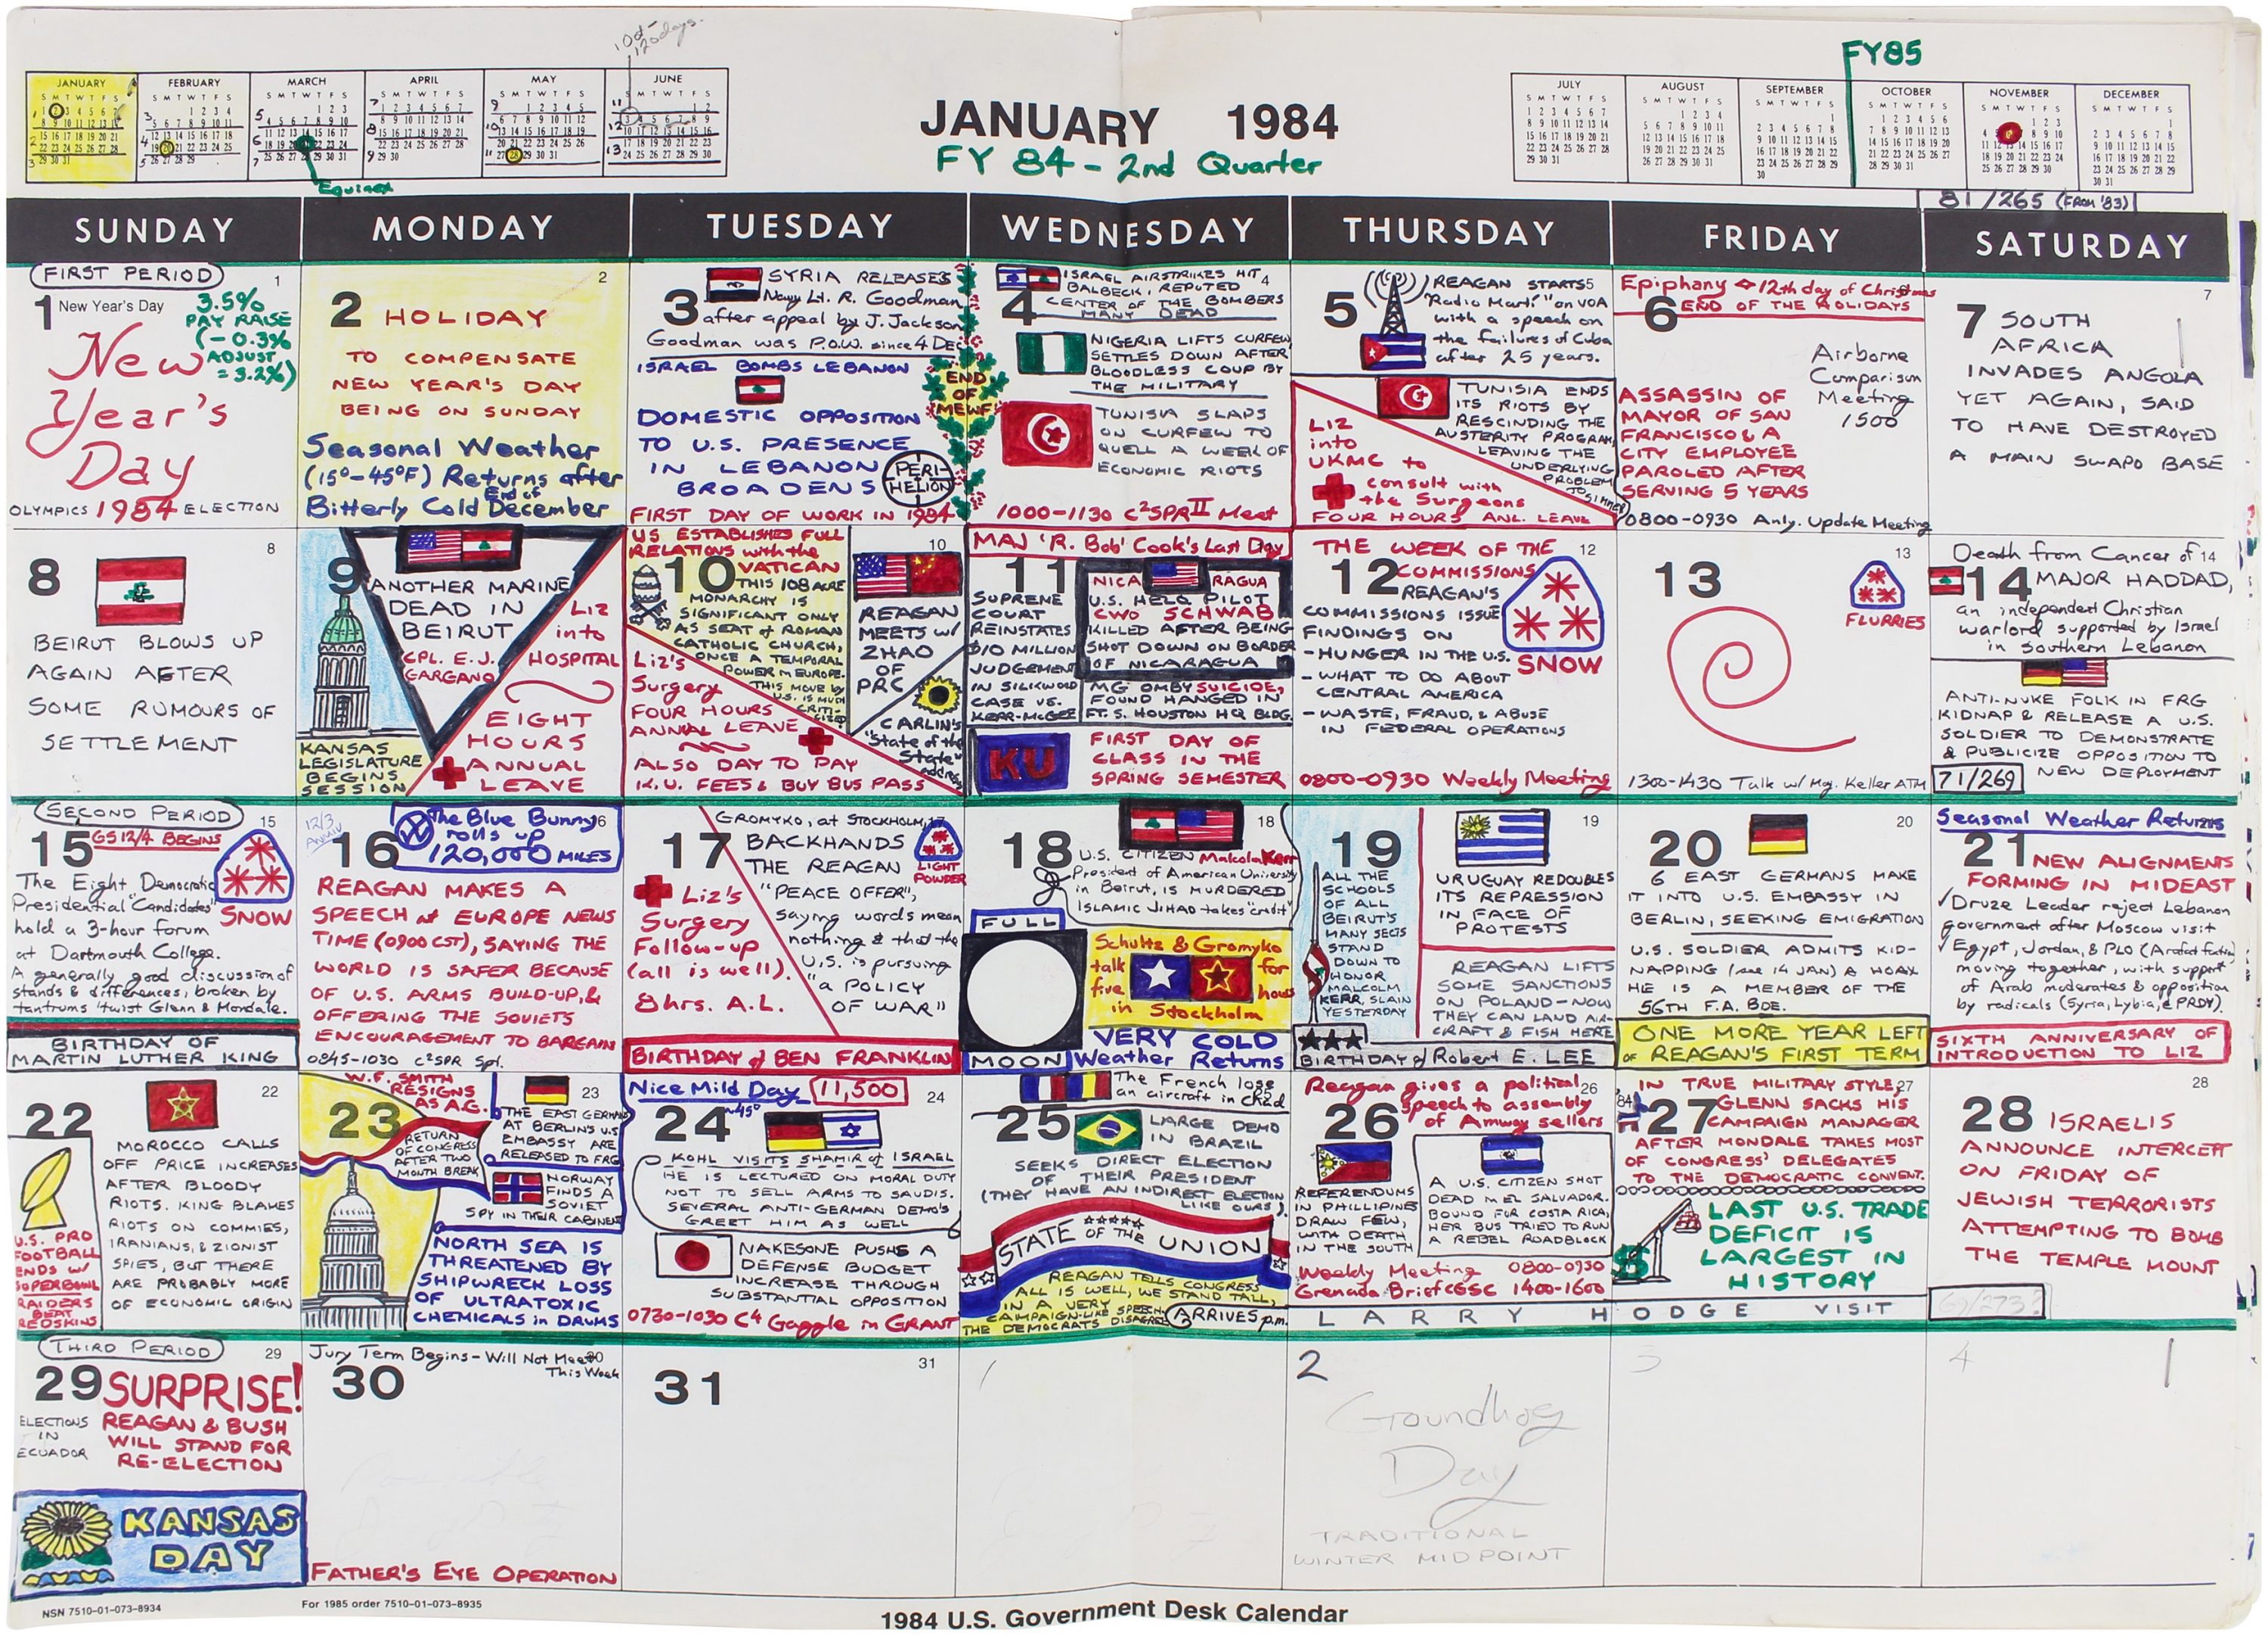 10d-
120 days.
FY85
JANUARY
S M T W T F S
1 2 3 4 5 6 7
8 9 10 11 12 13 14
15 16 17 18 19 20 21
22 23 24 25 26 27 28
29 30 31
FEBRUARY
S M T W T F S
1 2 3 4
5 6 7 8 9 10 11
12 13 14 15 16 17 18
19 20 21 22 23 24 25
26 27 28 29
MARCH
S M T W T F S
1 2 3
4 5 6 7 8 9 10
11 12 13 14 15 16 17
18 19 20 21 22 23 24
25 26 27 28 29 30 31
Equinox
APRIL
S M T W T F S
1 2 3 4 5 6 7
8 9 10 11 12 13 14
15 16 17 18 19 20 21
22 23 24 25 26 27 28
29 30
MAY
S M T W T F S
1 2 3 4 5
6 7 8 9 10 11 12
13 14 15 16 17 18 19
20 21 22 23 24 25 26
27 28 29 30 31
JUNE
S M T W T F S
1 2
3 4 5 6 7 8 9
10 11 12 13 14 15 16
17 18 19 20 21 22 23
24 25 26 27 28 29 30
JANUARY 1984
FY 84 - 2nd Quarter
JULY
S M T W T F S
1 2 3 4 5 6 7
8 9 10 11 12 13 14
15 16 17 18 19 20 21
22 23 24 25 26 27 28
29 30 31
AUGUST
S M T W T F S
1 2 3 4
5 6 7 8 9 10 11
12 13 14 15 16 17 18
19 20 21 22 23 24 25
26 27 28 29 30 31
SEPTEMBER
S M T W T F S
1
2 3 4 5 6 7 8
9 10 11 12 13 14 15
16 17 18 19 20 21 22
23 24 25 26 27 28 29
30
OCTOBER
S M T W T F S
1 2 3 4 5 6
7 8 9 10 11 12 13
14 15 16 17 18 19 20
21 22 23 24 25 26 27
28 29 30 31
NOVEMBER
S M T W T F S
1 2 3
4 5 6 7 8 9 10
11 12 13 14 15 16 17
18 19 20 21 22 23 24
25 26 27 28 29 30
DECEMBER
S M T W T F S
1
2 3 4 5 6 7 8
9 10 11 12 13 14 15
16 17 18 19 20 21 22
23 24 25 26 27 28 29
30 31
81/265 (FROM '83)
SUNDAY MONDAY TUESDAY WEDNESDAY THURSDAY FRIDAY SATURDAY
FIRST PERIOD
1
1 New Year's Day
3.5%
PAY RAISE
(-0.3%
ADJUST
=3.2%)
New
Year's
Day
OLYMPICS 1984 ELECTION
2
2 HOLIDAY
TO COMPENSATE
NEW YEAR'S DAY
BEING ON SUNDAY
Seasonal Weather
(15°-45°F) Returns after
Bitterly Cold End of December
3 SYRIA RELEASES
Navy Lt. R. Goodman
after appeal by J. Jackson
Goodman was P.O.W. since 4 Dec
ISRAEL BOMBS LEBANON
DOMESTIC OPPOSITION
TO U.S. PRESENCE
IN LEBANON
BROADENS
PERI-
HELION
FIRST DAY OF WORK IN 1984
END
OF
MEWF!
4
4 ISRAEL AIRSTRIKES HIT
BALBECK, REPUTED
CENTER OF THE BOMBERS
MANY DEAD
NIGERIA LIFTS CURFEW
SETTLES DOWN AFTER
BLOODLESS COUP BY
THE MILITARY
TUNISIA SLAPS
ON CURFEW TO
QUELL A WEEK OF
ECONOMIC RIOTS
1000-1130 C²SPR II Meet
5
5 REAGAN STARTS
"Radio Marti" on VOA
with a speech on
the failures of Cuba
after 25 years.
TUNISIA ENDS
ITS RIOTS BY
RESCINDING THE
AUSTERITY PROGRAM,
LEAVING THE
UNDERLYING
PROBLEM
TO SIMMER
Liz
into
UKMC to
consult with
the Surgeons
FOUR HOURS ANL. LEAVE
Epiphany 12th day of Christmas
6 END OF THE HOLIDAYS
Airborne
Comparison
Meeting
1500
ASSASSIN OF
MAYOR OF SAN
FRANCISCO & A
CITY EMPLOYEE
PAROLED AFTER
SERVING 5 YEARS
0800-0930 Anly. Update Meeting
7
7 SOUTH
AFRICA
INVADES ANGOLA
YET AGAIN, SAID
TO HAVE DESTROYED
A MAIN SWAPO BASE
8
8
BEIRUT BLOWS UP
AGAIN AFTER
SOME RUMOURS OF
SETTLEMENT
9
ANOTHER MARINE
DEAD IN
BEIRUT
CPL. E.J.
GARGANO
Liz
into
HOSPITAL
EIGHT
HOURS
ANNUAL
LEAVE
KANSAS
LEGISLATURE
BEGINS
SESSION
10
US ESTABLISHES FULL
RELATIONS with the
10 VATICAN
THIS 108 ACRE
MONARCHY IS
SIGNIFICANT ONLY
AS SEAT of ROMAN
CATHOLIC CHURCH,
ONCE A TEMPORAL
POWER in EUROPE.
THIS MOVE by
U.S. IS MUCH
CRITI-
CIZED
REAGAN
MEETS w/
ZHAO
OF
PRC
CARLIN'S
"State of the
State"
address
Liz's
Surgery
FOUR HOURS
ANNUAL LEAVE
ALSO DAY TO PAY
K.U. FEES & BUY BUS PASS
MAJ 'R. Bob' Cook's Last Day
11
SUPREME
COURT
REINSTATES
$10 MILLION
JUDGEMENT
IN SILKWOOD
CASE VS.
KERR-McGEE
NICARAGUA
U.S. HELO PILOT
CWO SCHWAB
KILLED AFTER BEING
SHOT DOWN ON BORDER
OF NICARAGUA
MG OMBY SUICIDE,
FOUND HANGED IN
FT. S. HOUSTON HQ BLDG.
KU
FIRST DAY OF
CLASS IN THE
SPRING SEMESTER
12
THE WEEK OF THE
12 COMMISSIONS
REAGAN'S
COMMISSIONS ISSUE
FINDINGS ON
-HUNGER IN THE U.S.
-WHAT TO DO ABOUT
CENTRAL AMERICA
-WASTE, FRAUD, & ABUSE
IN FEDERAL OPERATIONS
SNOW
0800-0930 Weekly Meeting
13
13
FLURRIES
1300-1430 Talk w/ Maj. Keller ATM
Death from Cancer of 14
14 MAJOR HADDAD,
an independent Christian
warlord supported by Israel
in southern Lebanon
ANTI-NUKE FOLK IN FRG
KIDNAP & RELEASE A U.S.
SOLDIER TO DEMONSTRATE
& PUBLICIZE OPPOSITION TO
NEW DEPLOYMENT
71/269
SECOND PERIOD
15
15 GS12/4 BEGINS
SNOW
The Eight Democratic
Presidential "Candidates"
hold a 3-hour forum
at Dartmouth College.
A generally good discussion of
stands & differences, broken by
tantrums 'twixt Glenn & Mondale.
BIRTHDAY OF
MARTIN LUTHER KING
12/3
ANNIV
16
The Blue Bunny
rolls up
120,000 MILES
REAGAN MAKES A
SPEECH at EUROPE NEWS
TIME (0900 CST), SAYING THE
WORLD IS SAFER BECAUSE
OF U.S. ARMS BUILD-UP, &
OFFERING THE SOVIETS
ENCOURAGEMENT TO BARGAIN
0845-1030 C²SPR Spl.
17
GROMYKO, at STOCKHOLM,
17 BACKHANDS
THE REAGAN
"PEACE OFFER",
saying words mean
nothing & that the
U.S. is pursuing
"a POLICY
OF WAR"
LIGHT
POWDER
Liz's
Surgery
Follow-up
(all is well).
8hrs. A.L.
BIRTHDAY of BEN FRANKLIN
18
18
U.S. CITIZEN Malcolm Kerr
President of American University
in Beirut, is MURDERED
ISLAMIC JIHAD takes "credit"
FULL
MOON
Schultz & Gromyko
talk for
five hours
in Stockholm
VERY COLD
Weather Returns
19
19
ALL THE
SCHOOLS
OF ALL
BEIRUT'S
MANY SECTS
STAND
DOWN TO
HONOR
MALCOLM
KERR, SLAIN
YESTERDAY
URUGUAY REDOUBLES
ITS REPRESSION
IN FACE OF
PROTESTS
REAGAN LIFTS
SOME SANCTIONS
ON POLAND-NOW
THEY CAN LAND AIR-
CRAFT & FISH HERE
BIRTHDAY of Robert E. LEE
20
20
6 EAST GERMANS MAKE
IT INTO U.S. EMBASSY IN
BERLIN, SEEKING EMIGRATION
U.S. SOLDIER ADMITS KID-
NAPPING (see 14 JAN) A HOAX
HE IS A MEMBER OF THE
56TH F.A. BDE.
ONE MORE YEAR LEFT
of REAGAN'S FIRST TERM
Seasonal Weather Returns
21 NEW ALIGNMENTS
FORMING IN MIDEAST
✓Druze Leader reject Lebanon
government after Moscow visit
✓Egypt, Jordan, & PLO (Arafat faction)
moving together, with support
of Arab moderates & opposition
by radicals (Syria, Lybia, & PRDY).
SIXTH ANNIVERSARY OF
INTRODUCTION TO LIZ
22
22
MOROCCO CALLS
OFF PRICE INCREASES
AFTER BLOODY
RIOTS. KING BLAMES
RIOTS ON COMMIES,
IRANIANS, & ZIONIST
SPIES, BUT THERE
ARE PROBABLY MORE
OF ECONOMIC ORIGIN
U.S. PRO
FOOTBALL
ENDS w/
SUPERBOWL
RAIDERS
BEAT
REDSKINS
W.F. SMITH
RESIGNS
AS A.G.
23
23
RETURN
OF CONGRESS
AFTER TWO
MONTH BREAK
THE EAST GERMANS
AT BERLIN'S U.S.
EMBASSY ARE
RELEASED TO FRG
NORWAY
FINDS A
SOVIET
SPY IN THEIR CABINET
NORTH SEA IS
THREATENED BY
SHIPWRECK LOSS
OF ULTRATOXIC
CHEMICALS in DRUMS
Nice Mild Day 11,500
~45°
24
24
KOHL VISITS SHAMIR of ISRAEL
HE IS LECTURED ON MORAL DUTY
NOT TO SELL ARMS TO SAUDIS.
SEVERAL ANTI-GERMAN DEMO'S
GREET HIM AS WELL
NAKESONE PUSHS A
DEFENSE BUDGET
INCREASE THROUGH
SUBSTANTIAL OPPOSITION
0730-1030 C4 Gaggle in GRANT
The French lose
an aircraft in Chad
25
LARGE DEMO
IN BRAZIL
SEEKS DIRECT ELECTION
OF THEIR PRESIDENT
(THEY HAVE AN INDIRECT ELECTION
LIKE OURS).
STATE OF THE UNION
REAGAN TELLS CONGRESS
ALL IS WELL, WE STAND TALL,
IN A VERY
CAMPAIGN-LIKE SPEECH.
THE DEMOCRATS DISAGREE
ARRIVES p.m.
Reagan gives a political 26
speech to assembly
of Amway sellers
26
REFERENDUMS
IN PHILLIPINES
DRAW FEW,
WITH DEATH
IN THE SOUTH
A U.S. CITIZEN SHOT
DEAD in EL SALVADOR.
BOUND FOR COSTA RICA,
HER BUS TRIED TO RUN
A REBEL ROADBLOCK
Weekly Meeting 0800-0930
Grenada Brief CGSC 1400-1600
LARRY HODGE VISIT
IN TRUE MILITARY STYLE, 27
'84
27 GLENN SACKS HIS
CAMPAIGN MANAGER
AFTER MONDALE TAKES MOST
OF CONGRESS' DELEGATES
TO THE DEMOCRATIC CONVENT.
LAST U.S. TRADE
DEFICIT IS
LARGEST IN
HISTORY
$
28
28 ISRAELIS
ANNOUNCE INTERCEPT
ON FRIDAY OF
JEWISH TERRORISTS
ATTEMPTING TO BOMB
THE TEMPLE MOUNT
THIRD PERIOD
29
29 SURPRISE!
REAGAN & BUSH
WILL STAND FOR
RE-ELECTION
ELECTIONS
IN
ECUADOR
KANSAS
DAY
Jury Term Begins - Will Not Meet
This Week
30
30
FATHER'S EYE OPERATION
31
31
1
2
Groundhog
Day
TRADITIONAL
WINTER MIDPOINT
3
4
NSN 7510-01-073-8934
For 1985 order 7510-01-073-8935
1984 U.S. Government Desk Calendar